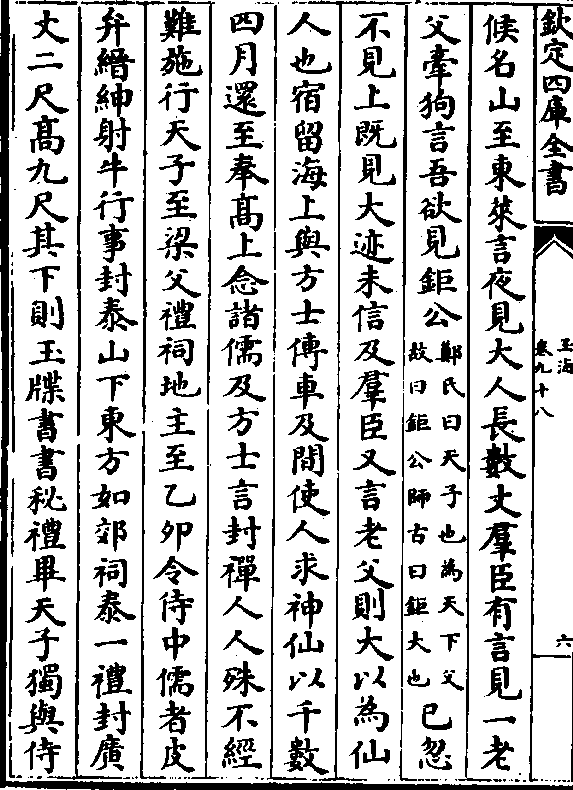 欽定四庫全書
玉海
卷九十八
六
候名山至東萊言夜見大人長數丈羣臣有言見一老
父牽狗言吾欲見鉅公鄭氏曰天子也為天下父故曰鉅公師古曰鉅大也已忽
不見上既見大迹未信及羣臣又言老父則大以為仙
人也宿留海上與方士傳車及間使人求神仙以千數
四月還至奉髙上念諸儒及方士言封禪人人殊不經
難施行天子至梁父禮祠地主至乙卯令侍中儒者皮
弁縉紳射牛行事封泰山下東方如郊祠泰一禮封廣
丈二尺髙九尺其下則玉牒書書秘禮畢天子獨與侍